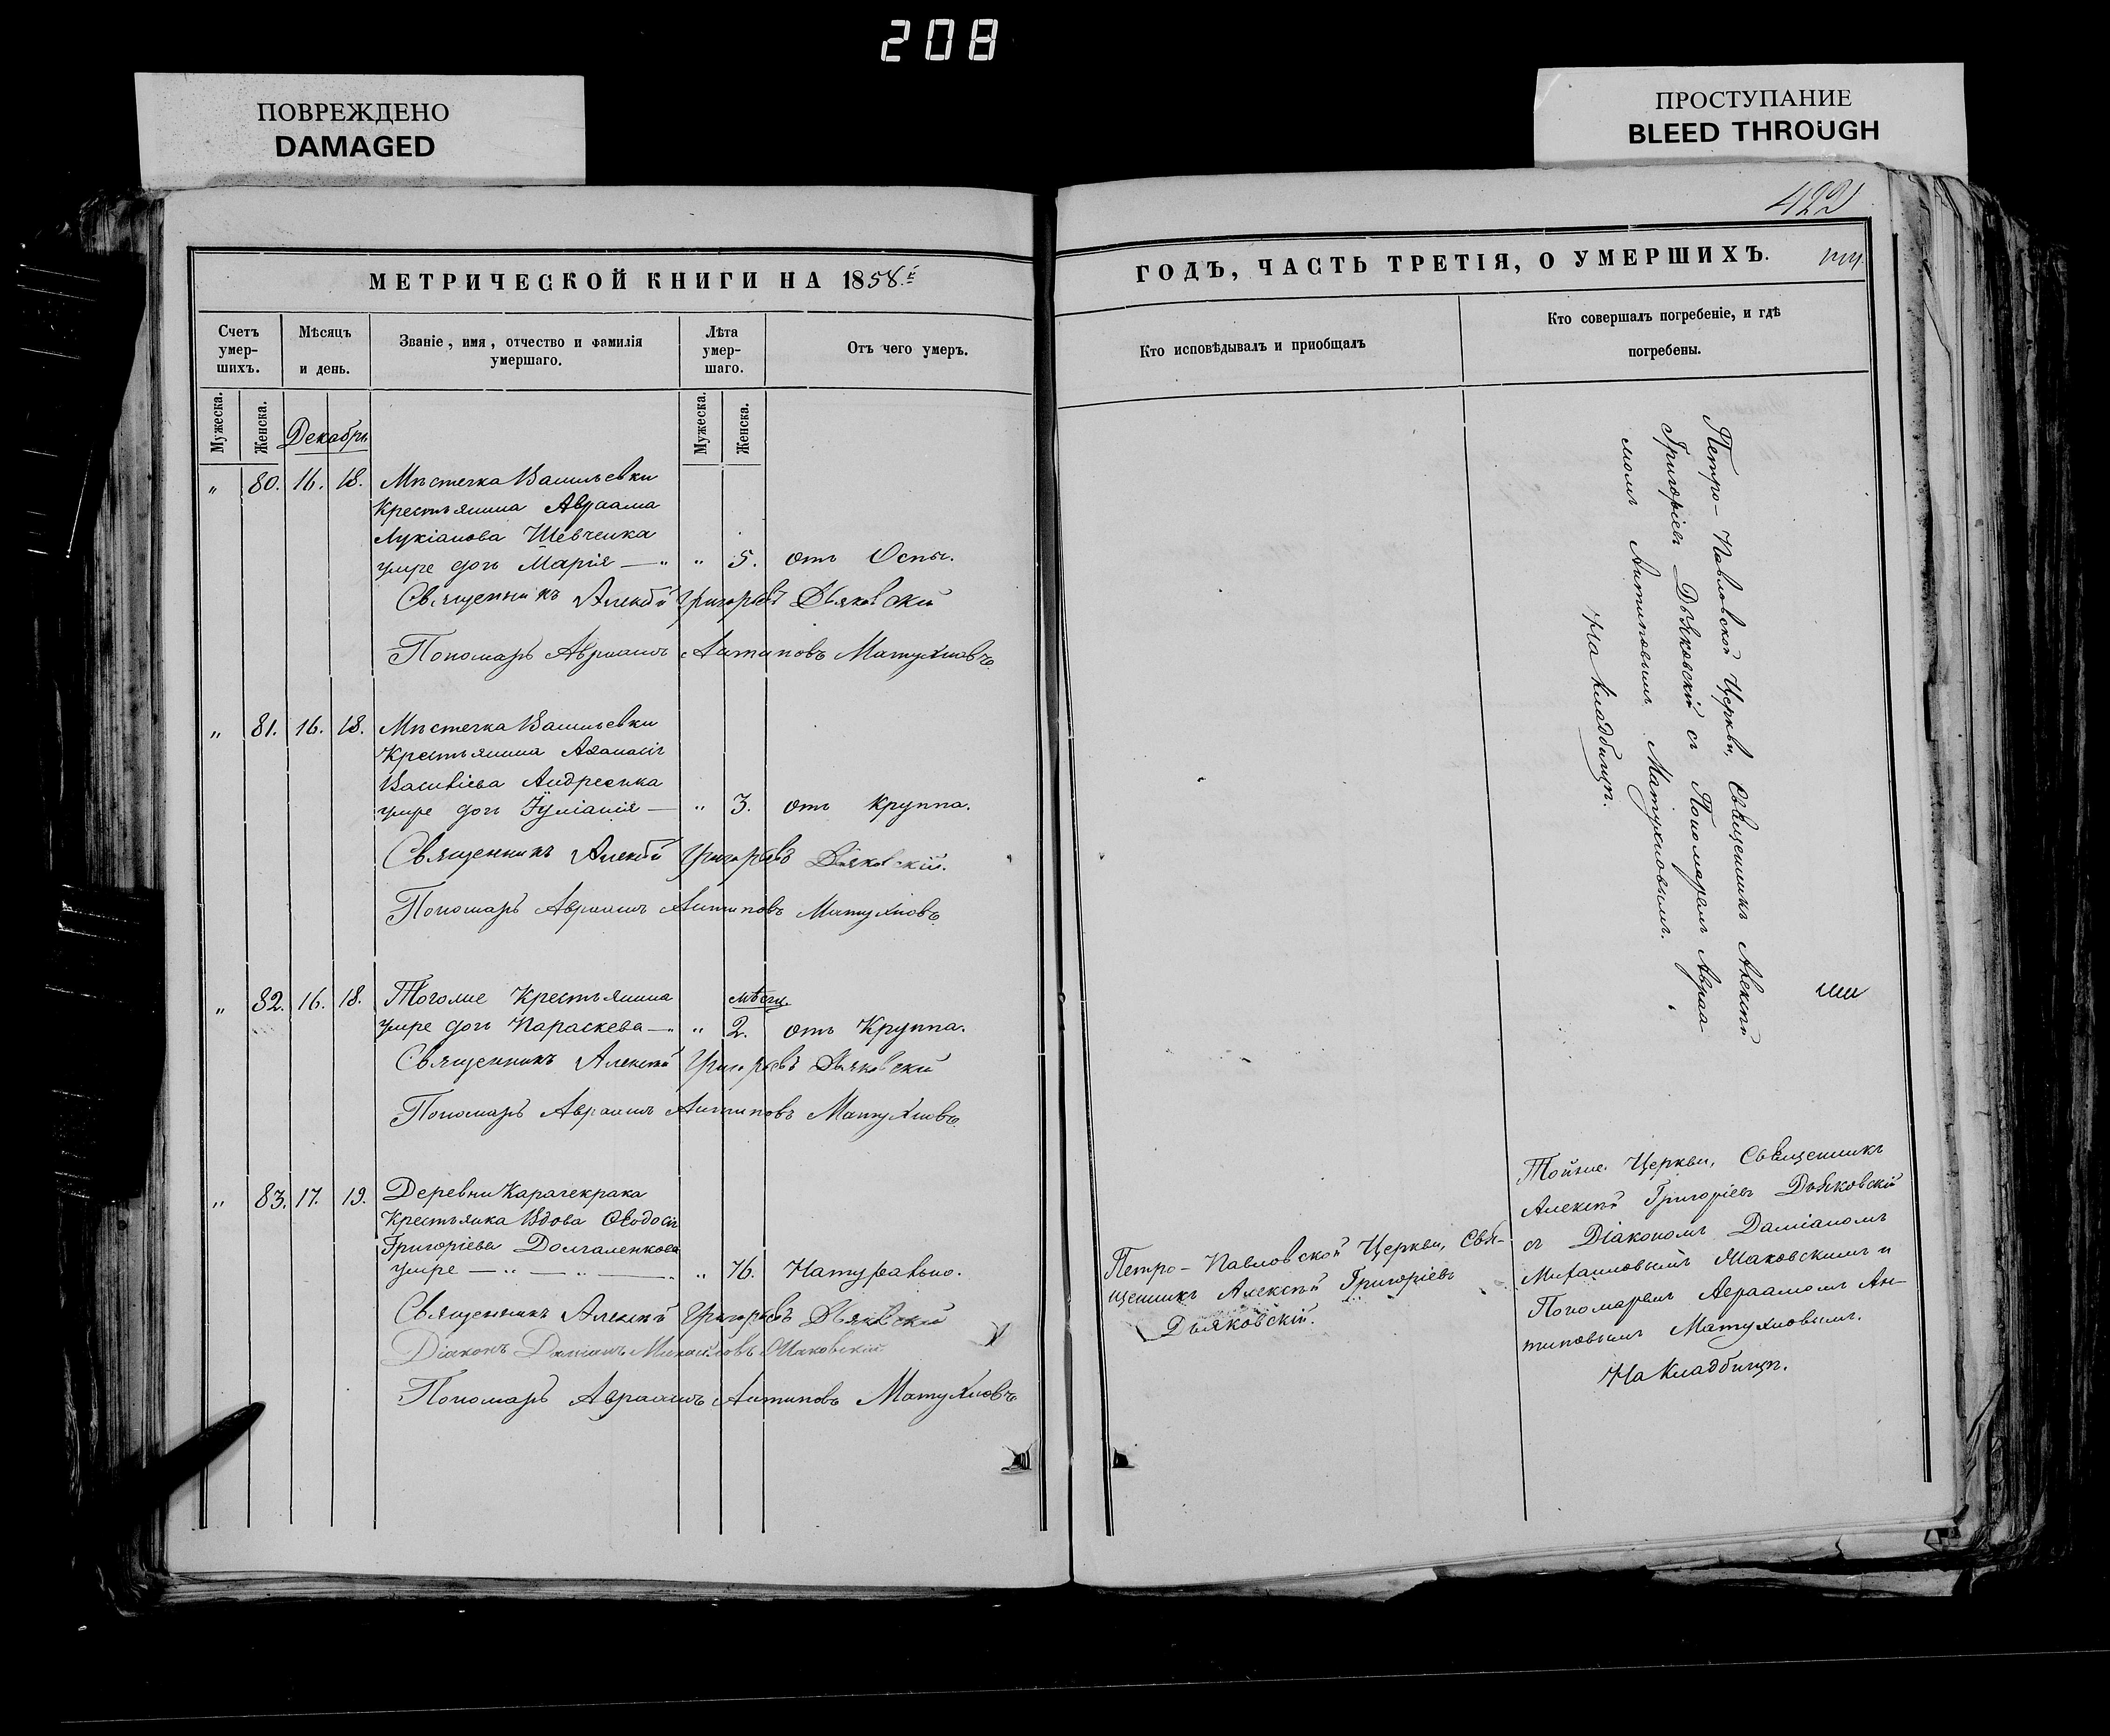 208
ПОВРЕЖДЕНО
DAMAGED
ПРОСТУПАНИЕ
BLEED THROUGH
МЕТРИЧЕСКОЙ КНИГИ НА 1858.й
Счетъ умер-шихъ.
Мѣсяцъ и день.
Званіе, имя, отчество и фамилія умершаго.
Лѣта умер-шаго.
Отъ чего умеръ.
Мужеска.
Женска.
Декабрь
Мужеска.
Женска.
" 80. 16. 18. Мѣстечка Васильевки
Крестьянина Авраама
Лукіанова Шевченка
умре дочь Марія — " " 5. отъ Оспы.
Священникъ Алексѣй Григорьевъ Дьяковскій
Пономарь Авраамъ Антиповъ Матухновъ
" 81. 16. 18. Мѣстечка Васильевки
Крестьянина Аѳанасія
Василіева Андреенка
умре дочь Іуліанія — " 3. отъ Круппа.
Священникъ Алексѣй Григорьевъ Дьяковскій.
Пономарь Авраамъ Антиповъ Матухновъ
" 82. 16. 18. Тогоже Крестьянина мѣсяц.
умре дочь Параскева — " " 2. отъ Круппа.
Священникъ Алексѣй Григорьевъ Дьяковскій
Пономарь Авраамъ Антиповъ Матухновъ
" 83. 17. 19. Деревни Карачекрака
Крестьянка Вдова Ѳеодосія
Григоріева Долгаленкова
умре — " — " — " " 76. Натурально.
Священникъ Алексѣй Григорьевъ Дьяковскій
Діаконъ Даміанъ Михайловъ Маковскій
Пономарь Авраамъ Антиповъ Матухновъ
422
ГОДЪ, ЧАСТЬ ТРЕТІЯ, О УМЕРШИХЪ.
Кто исповѣдывалъ и приобщалъ
Кто совершалъ погребеніе, и гдѣ
погребены.
Петро-Павловской Церкви, Священникъ Алексѣй
Григоріевъ Дьяковскій съ Пономаремъ Авраа-
момъ Антиповымъ Матухновымъ.
На Кладбищѣ.
Петро-Павловской Церкви, Свя-
щенникъ Алексѣй Григоріевъ
Дьяковскій.
Тойже Церкви, Священникъ
Алексѣй Григоріевъ Дьяковскій
съ Діакономъ Даміаномъ
Михаиловымъ Маковскимъ и
Пономаремъ Авраамомъ Ан-
типовымъ Матухновымъ.
На Кладбищѣ.